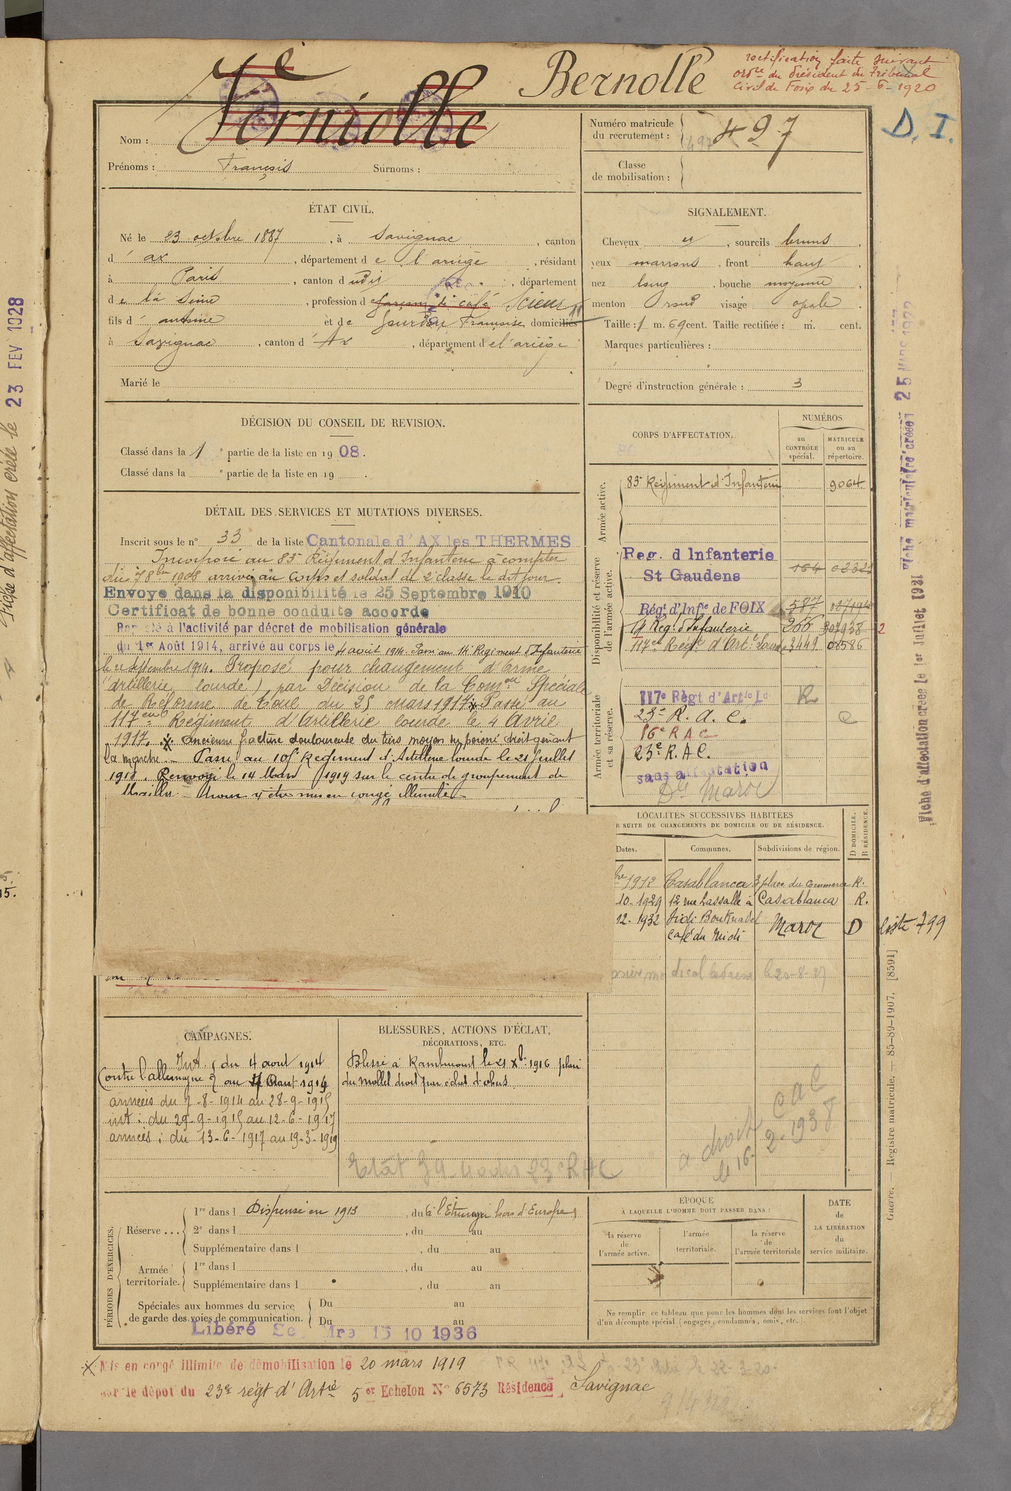 Bernolle
rectification faite suivant
ord.ce du Président du Tribunal
Civil de Foix du 25-6-1920
D. I.
Nom : Verniolle
Prénoms : François Surnoms :
Numéro matricule
du recrutement : 497
Classe
de mobilisation :
ÉTAT CIVIL.
Né le 23 octobre 1887, à Savignac, canton
d' ax, département de l'ariège, résidant
à Paris, canton d , département
de la Seine, profession de garçon de café Scieur
fils d' antoine et de Jourdon Françoise, domiciliés
à Savignac, canton d' Ax, département de l'ariège
Marié le
SIGNALEMENT.
Cheveux et, sourcils bruns
yeux marrons, front haut
nez long, bouche moyenne
menton rond visage ovale
Taille : 1 m. 69 cent. Taille rectifiée : m. cent.
Marques particulières :
Degré d'instruction générale : 3
DÉCISION DU CONSEIL DE REVISION.
Classé dans la 1re partie de la liste en 1908.
Classé dans la e partie de la liste en 19 .
DÉTAIL DES SERVICES ET MUTATIONS DIVERSES.
Inscrit sous le n° 33 de la liste Cantonale d'AX les THERMES
Incorporé au 83e Régiment d'Infanterie à compter
du 7 8bre 1908 arrivé au corps et soldat de 2e classe le dit jour.
Envoye dans la disponibilité le 25 Septembre 1910
Certificat de bonne conduite accorde
Rappelé à l'activité par décret de mobilisation générale
du 1er Août 1914, arrivé au corps le 4 août 1914. Passé au 14e Régiment d'Infanterie
le 11 septembre 1914. Proposé pour changement d'arme
(artillerie lourde) par Décision de la Comon Spéciale
de Réforme de Toul du 25 mars 1917 * Passé au
117eme Régiment d'Artillerie lourde le 4 Avril
1917. * ancienne fracture douloureuse du tiers moyen gênant
la marche. Passé au 105e Régiment d'Artillerie lourde le 21 Juillet
1918. Renvoyé le 14 Mars 1919 sur le centre de groupement de
Noailles pour y être mis en congé illimité
CORPS D'AFFECTATION.
NUMÉROS
au
CONTRÔLE
spécial.
MATRICULE
ou au
répertoire.
Armée active.
83e Régiment d'Infanterie 9064
Disponibilité et réserve
de l'armée active.
Reg. d Infanterie
St Gaudens 164
Rég. d'Infie de FOIX 587
14 Rég. d'Infanterie 266
117e Régt d'Art. Lourde 3449 08586
Armée territoriale
et sa réserve.
117e Régt d'Artie Lde R
23e R. A. C. C
16e R A C
23e R. A. C.
sans affectation
De Maroc
LOCALITÉS SUCCESSIVES HABITÉES
PAR SUITE DE CHANGEMENTS DE DOMICILE OU DE RÉSIDENCE.
Dates. Communes. Subdivisions de région. D DOMICILE. R RÉSIDENCE.
1912 Casablanca 3 place du Commerce R.
10. 1929 12 rue Lassalle à Casablanca R.
12. 1932 Sidi Bouknadel Maroc D
café du Midi
liste 799
CAMPAGNES.
Int. du 4 aout 1914
Contre l'allemagne au 8 Aout 1914
armées du 9-8-1914 au 28-9-1915
int : du 29-9-1915 au 12-6-1917
armées : du 13-6-1917 au 19-3-1919
BLESSURES, ACTIONS D'ÉCLAT,
DÉCORATIONS, ETC.
Blessé à le 21 Xbre 1916 plaie
du mollet droit par éclat d'obus
a droit CAC
le 16-2-1938
PÉRIODES D'EXERCICES.
Réserve...
1re dans l Dispensé en 1913, du à l'Étranger hors d'Europe
2e dans l , du au
Supplémentaire dans l , du au
Armée
territoriale.
1re dans l , du au
Supplémentaire dans l , du au
Spéciales aux hommes du service
de garde des voies de communication.
Du au
Du au
Libéré 15 10 1936
ÉPOQUE
À LAQUELLE L'HOMME DOIT PASSER DANS :
la réserve
de
l'armée active.
l'armée
territoriale.
la réserve
de
l'armée territoriale
DATE
de
LA LIBÉRATION
du
service militaire.
Ne remplir ce tableau que pour les hommes dont les services font l'objet
d'un décompte spécial (engagés, condamnés, omis, etc.).
* Mis en congé illimité de démobilisation le 20 mars 1919
par le dépôt du 23e régt d'Artie 5er Echelon N° 6573 Résidence Savignac
Fiche d'affectation créée le 23 FEV 1928
Fiche matriculaire créée 25 MARS
Fiche d'affectation créée le 1er Juillet 1931
Guerre. — Registre matricule. — 85-89-1907. [8591]